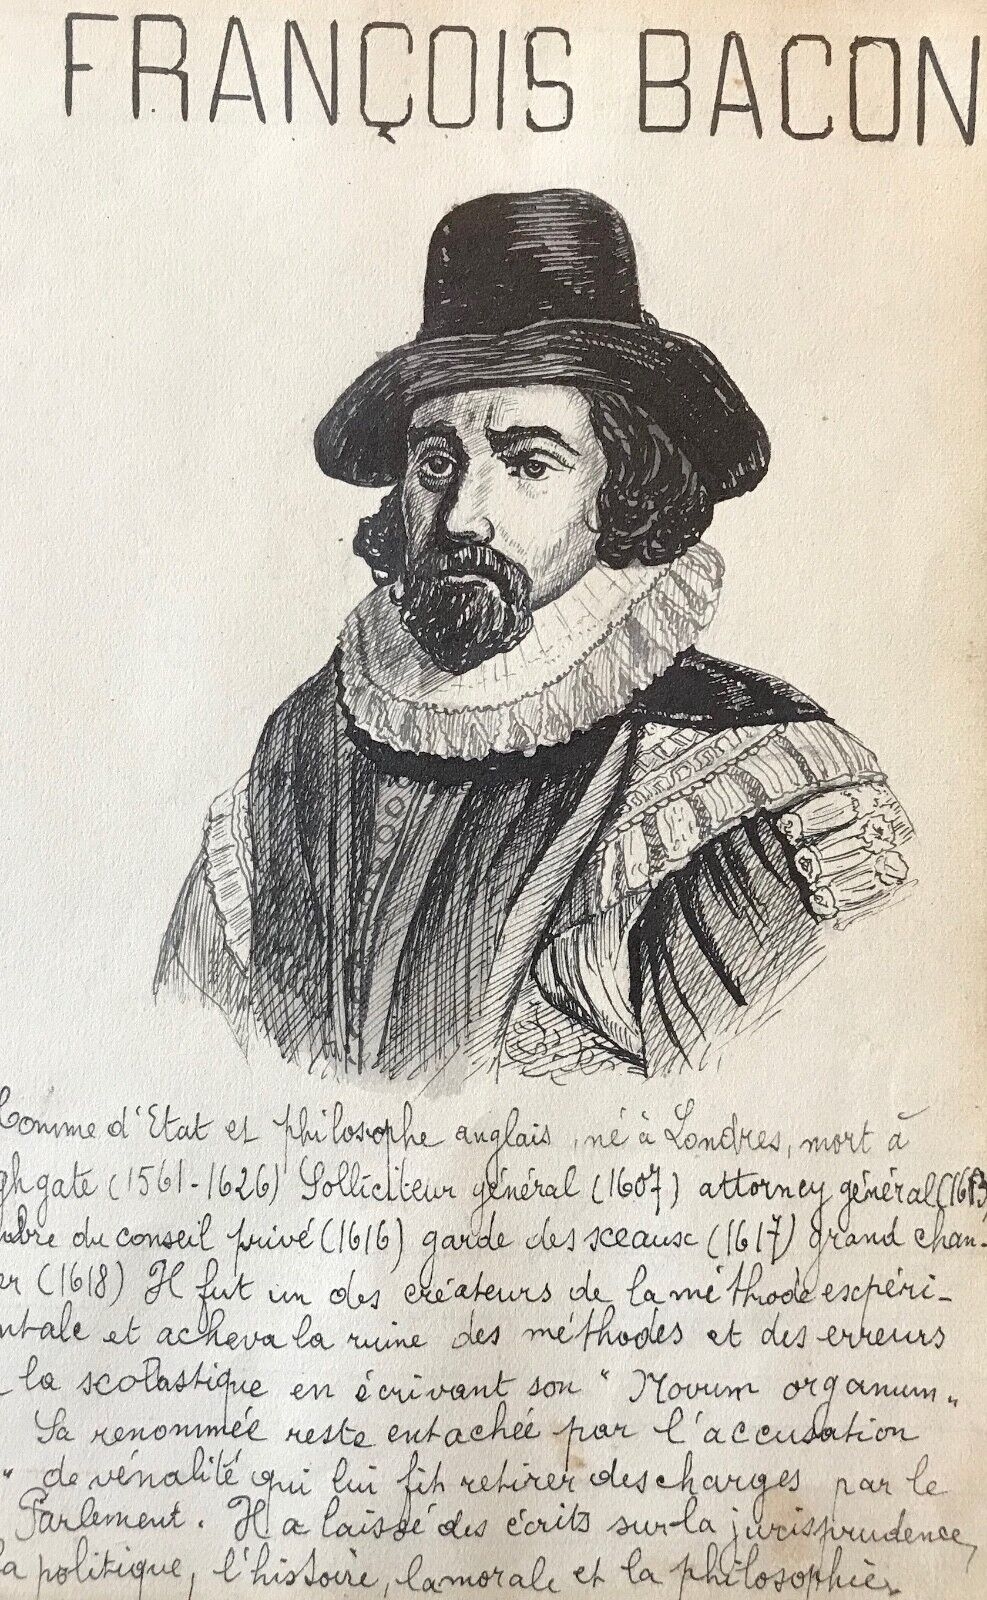 FRANÇOIS BACON
Homme d'Etat et philosophe anglais, né à Londres, mort à
ghgate (1561-1626) Solliciteur général (1607) attorney général (1613)
mbre du conseil privé (1616) garde des sceaux (1617) grand chan-
er (1618) Il fut un des créateurs de la méthode expéri-
ntale et acheva la ruine des méthodes et des erreurs
la scolastique en écrivant son "Novum organum"
Sa renommée reste entachée par l'accusation
" de vénalité qui lui fit retirer des charges par le
Parlement. Il a laissé des écrits sur la jurisprudence,
la politique, l'histoire, la morale et la philosophie.